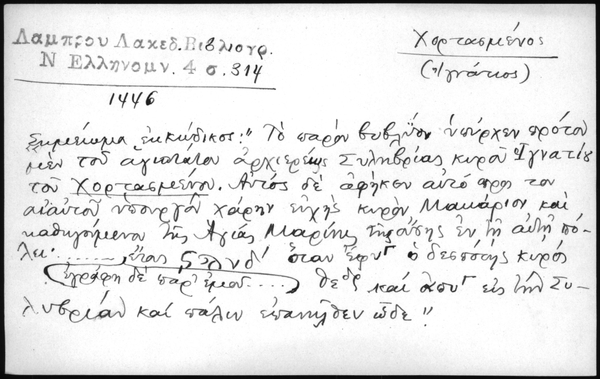 Λαμπρου Λακεδ. Βιβλιογρ.
Ν Ελληνομν. 4 σ. 314
Χορτασμένος
(Ἰγνάτιος)
1446
Σημείωμα ἐκ κώδικος: "Τὸ παρὸν βυβλίον ὑπῆρχεν πρότον
μὲν τοῦ ἁγιοτάτου ἀρχιερέως Συληβρίας κυροῦ Ἰγνατίου
τοῦ Χορτασμένου. Αὐτὸς δὲ ἀφῆκεν αὐτὸ προς τον
αὐτοῦ ὑποτργὸν χάρην εὐχῆς κυρὸν Μακάριον καὶ
καθηγούμενον τῆς Ἁγίας Μαρίνης τῆς ἐν τῇ αὐτῇ πό-
λει. ....... ἔτους ϛϡνδ' ὅταν ἔφυγ ὁ δεσπότης κυρὸς
(ἐγράφη δὲ παρ' ἐμοῦ ....) θεοδρ καὶ εἰς τὴν Συ-
λυβρίαν καὶ πάλιν ἐπανῆλθεν ὧδε"